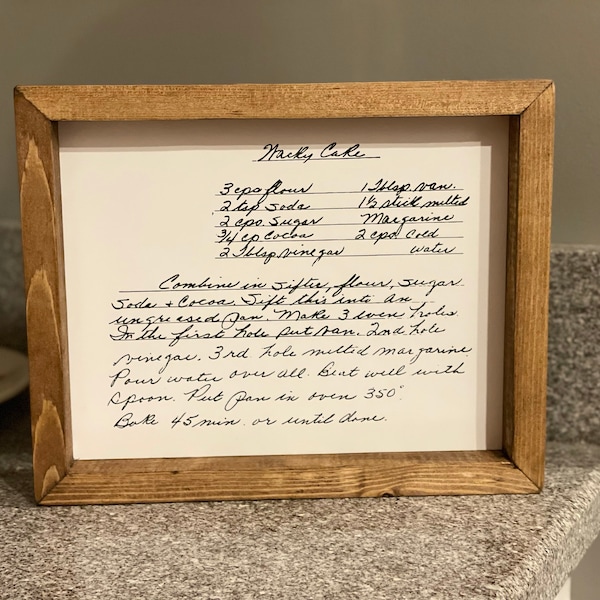 Wacky Cake
3 cps flour 1 Tblsp. van.
2 tsp soda 1½ stick melted
2 cps. sugar Margarine
¾ cp cocoa 2 cps. cold
2 Tblsp. vinegar water
Combine in sifter, flour, sugar
soda + cocoa. Sift this into an
ungreased pan. Make 3 even holes.
In the first hole put van. 2nd hole
vinegar. 3rd hole melted margarine.
Pour water over all. Beat well with
spoon. Put pan in oven 350°.
Bake 45 min. or until done.